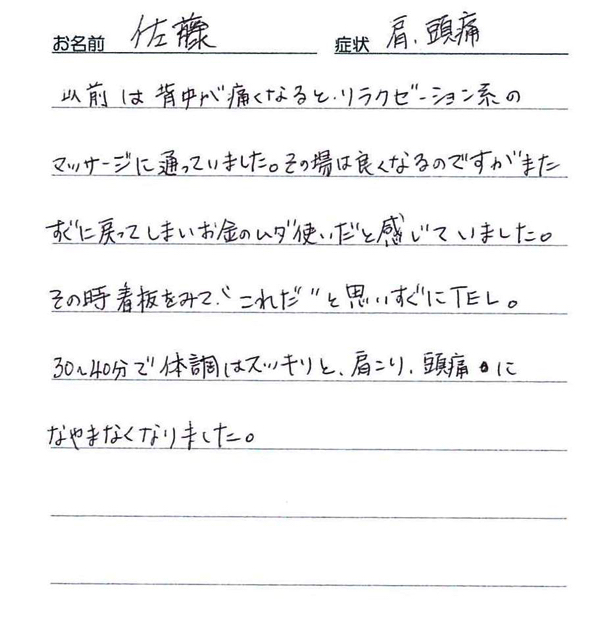 お名前 佐藤 症状 肩、頭痛
以前は背中が痛くなると、リラクゼーション系の
マッサージに通っていました。その場は良くなるのですがまた
すぐに戻ってしまいお金のムダ使いだと感じていました。
その時看板をみて、“これだ”と思いすぐにTEL。
30~40分で体調はスッキリと、肩こり、頭痛に
なやまなくなりました。